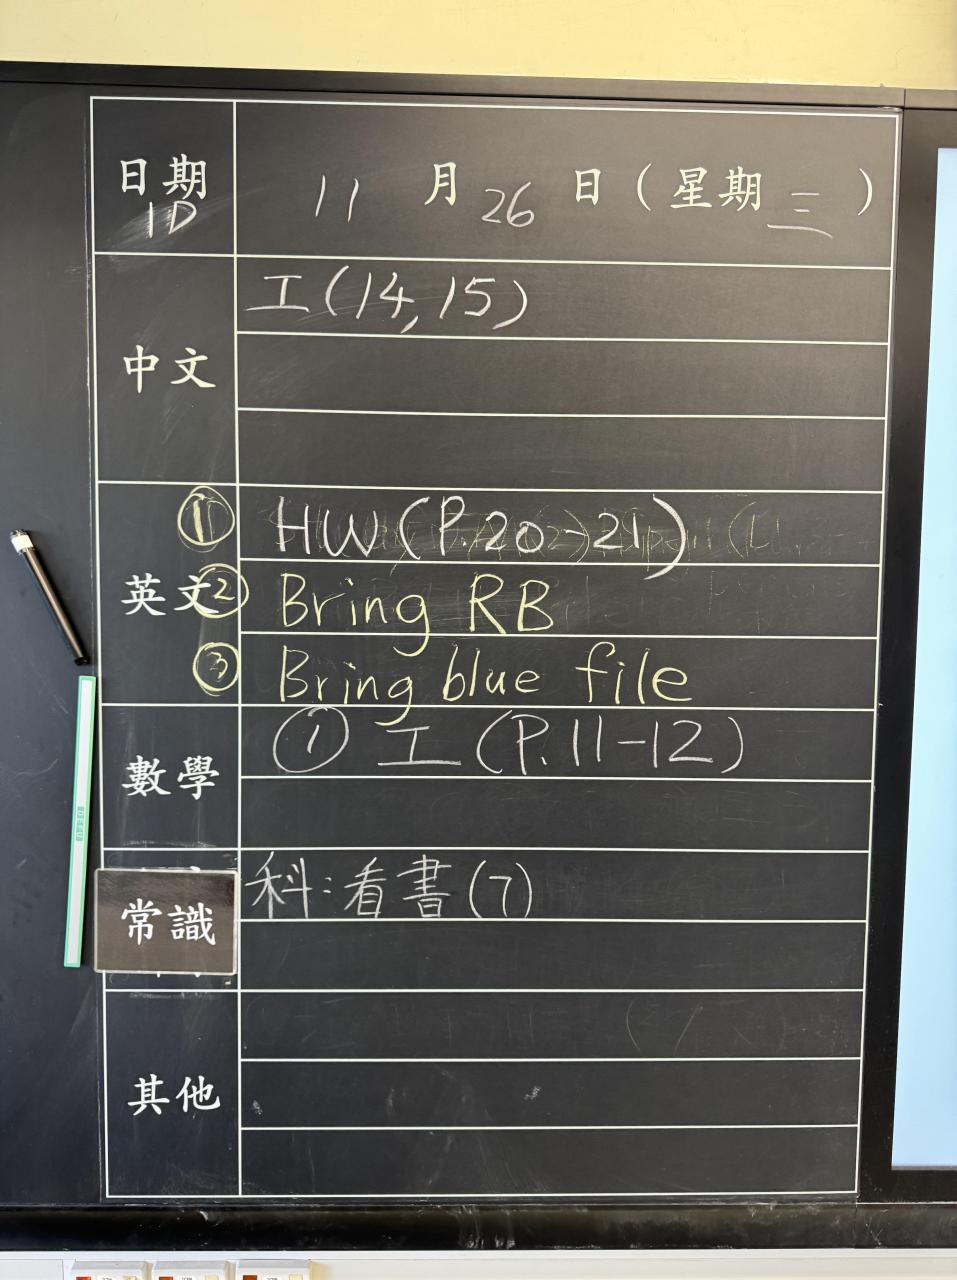 日期 11月26日(星期三)
1D
中文 工(14,15)
① HW(P.20-21)
英文 ② Bring RB
③ Bring blue file
數學 ① 工(P.11-12)
常識 科:看書(7)
其他